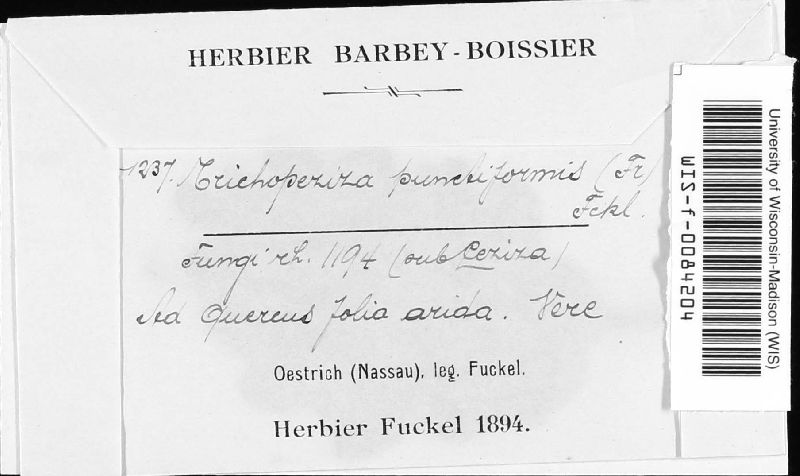 HERBIER BARBEY-BOISSIER
1237. Trichopeziza punctiformis (Fr)
Fckl.
Fungi rh. 1194 (sub Peziza)
Ad Quercus folia arida. Vere
Oestrich (Nassau), leg. Fuckel.
Herbier Fuckel 1894.
University of Wisconsin-Madison (WIS)
WIS-f-0084204